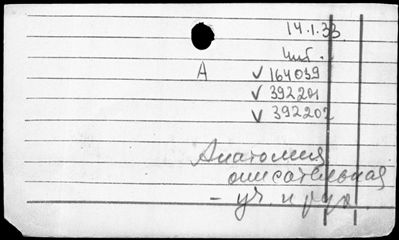 14.1.33
Чит.
А ✓ 164039
✓ 392201
✓ 392202
Анатомия
описательная
- уч. и рук.